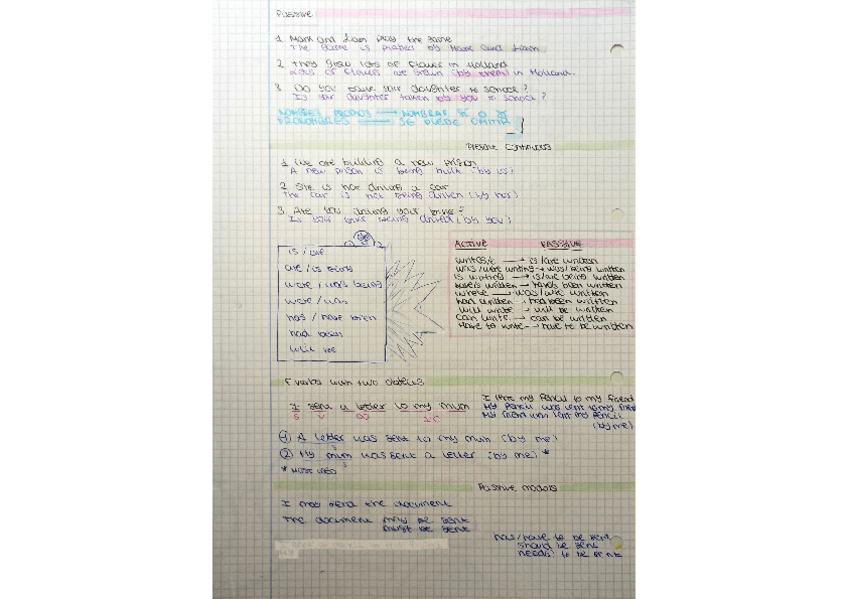 Passive
1 Mark and Liam play the game
The game is played by Mark and Liam
2 They grow lots of flower in Holland
Lots of flower are grown (by them) in Holland.
3 Do you take your daughter to school?
Is your daughter taken by you to school?
NOMBRES PROPIOS → NOMBRAR
PRONOMBRES → SE PUEDE OMITIR
Present Continuous
1 We are building a new prison
A new prison is being built (by us)
2 She is not driving a car
The car is not being driven (by her)
3 Are you driving your bike?
Is your bike being drived (by you)
is / are
are / is being
were / was being
were / was
has / have been
had been
will be
ACTIVE PASSIVE
write/s → is/are written
was/were writing → was/being written
is writing → is/are being written
written → have/s been written
wrote → was/were written
had written → had been written
will write → will be written
can write → can be written
have to write → have to be written
verbs with two objects
I sent a letter to my mum
S V
I lent my pencil to my friend
My pencil was lent to my friend
My friend was lent my pencil
(by me)
① A letter was sent to my mum (by me)
② My mum was sent a letter (by me) *
S
* MOST USED
Passive modals
I may send the document
The document may be sent
must be sent
has/have to be sent
should be sent
needs to be sent